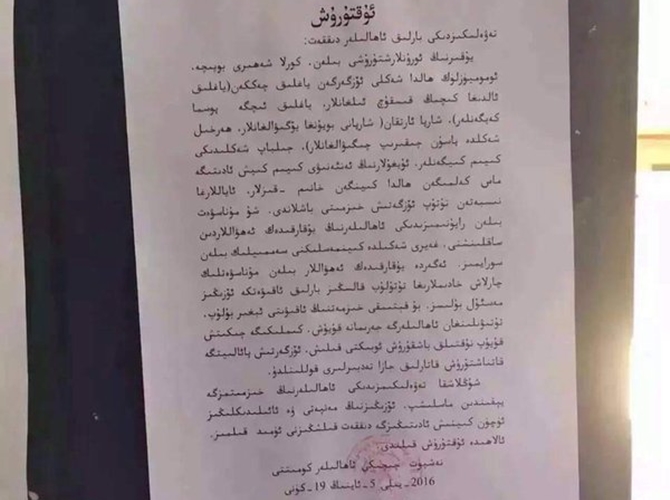 ئۇقتۇرۇش
تەۋەلىكىمىزدىكى بارلىق ئاھالىلەر دىققەت:
يۇقىرىنىڭ ئورۇنلاشتۇرۇشى بىلەن، كورلا شەھىرى بويىچە،
ئومۇميۈزلۈك ھالدا شەكلى ئۆزگەرگەن ياغلىق چەككەن(ياغلىق
ئالدىغا كىچىك قىسقۇچ ئىلغانلار، ياغلىق ئىچىگە پوسما
كەيگەنلەر)، شارپا ئارتقان( شارپانى بويۇنغا يۆگىۋالغانلار، ھەرخىل
شەكلدە پاسون چىقىرىپ چىگىۋالغانلار)، جىلباپ شەكلىدىكى
كىيىم كىيگەنلەر، ئۇيغۇلارنىڭ ئەنئەنىۋى كىيىم كىيىش ئادىتىگە
ماس كەلمىگەن ھالدا كىيىنگەن خانىم -قىزلار، ئاياللارغا
نىسبەتەن تۇتۇپ ئۆزگەرتىش خىزمىتى باشلاندى. شۇ مۇناسىۋەت
بىلەن رايۇنىمىزدىكى ئاھالىلەرنىڭ يۇقارقىدەك ئەھۋاللاردىن
ساقلىنىشنى، غەيرى شەكىلدە كىيىنمەسلىكنى سەممىيلىك بىلەن
سورايمىز. ئەگەردە يۇقارقىدەك ئەھۋاللار بىلەن مۇناسىۋەتلىك
چارلاش خادىملارغا تۇتۇلۇپ قالسىڭىز بارلىق ئاقىۋەتكە ئۆزىڭىز
مەسئۇل بۇلىسىز. بۇ قېتىمقى خىزمەتنىڭ ئاقىۋىتى ئېغىر بۇلۇپ،
تۇتۇلغان ئاھالىلەرگە جەرىمانە قۇيۇش، كىملىكىگە چىكىتىش
قۇيۇپ نۇقتىلىق باشقۇرۇش ئوبىكتى قىلىش، ئۆزگەرتىش پائالىيىتىگە
قاتناشتۇرۇش قاتارلىق جازا تەدبىرلىرى قوللىنىلدۇ.
شۇڭلاشقا تەۋەلىكىمىزدىكى ئاھالىلەرنىڭ خىزمىتىمىزگە
يېقىندىن ماسلىشىپ، ئۆزىڭىزنىڭ مەنپەئىتى ۋە ئائىلىدىكىلىڭىز
ئۈچۈن كىيىنىش ئادىتىڭىزگە دىققەت قىلشىڭىزنى ئۈمىد قىلىمىز.
ئالاھىدە ئۇقتۇرۇش قىلىندى.
نەشپۈت چىچىكى ئاھالىلەر كومىتىتى
2016-يىلى 5-ئاينىڭ 19-كۈنى